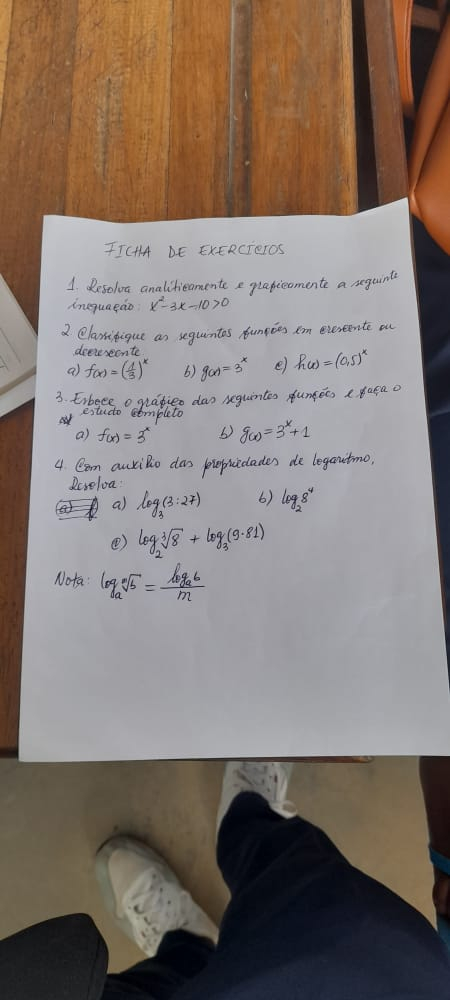 FICHA DE EXERCÍCIOS
1. Resolva analiticamente e graficamente a seguinte
inequação: x²-3x-10>0
2 Classifique as seguintes funções em crescente ou
decrescente
a) f(x) = (1/3)^x b) g(x) = 3^x c) h(x) = (0,5)^x
3. Esboce o gráfico das seguintes funções e faça o
estudo completo
a) f(x) = 3^x b) g(x) = 3^x + 1
4. Com auxílio das propriedades de logaritmo,
Resolva:
a) log₃(3:27) b) log₂8⁴
c) log₂∛8 + log₃(9·81)
Nota: logₐ ᵐ√b = logₐb / m